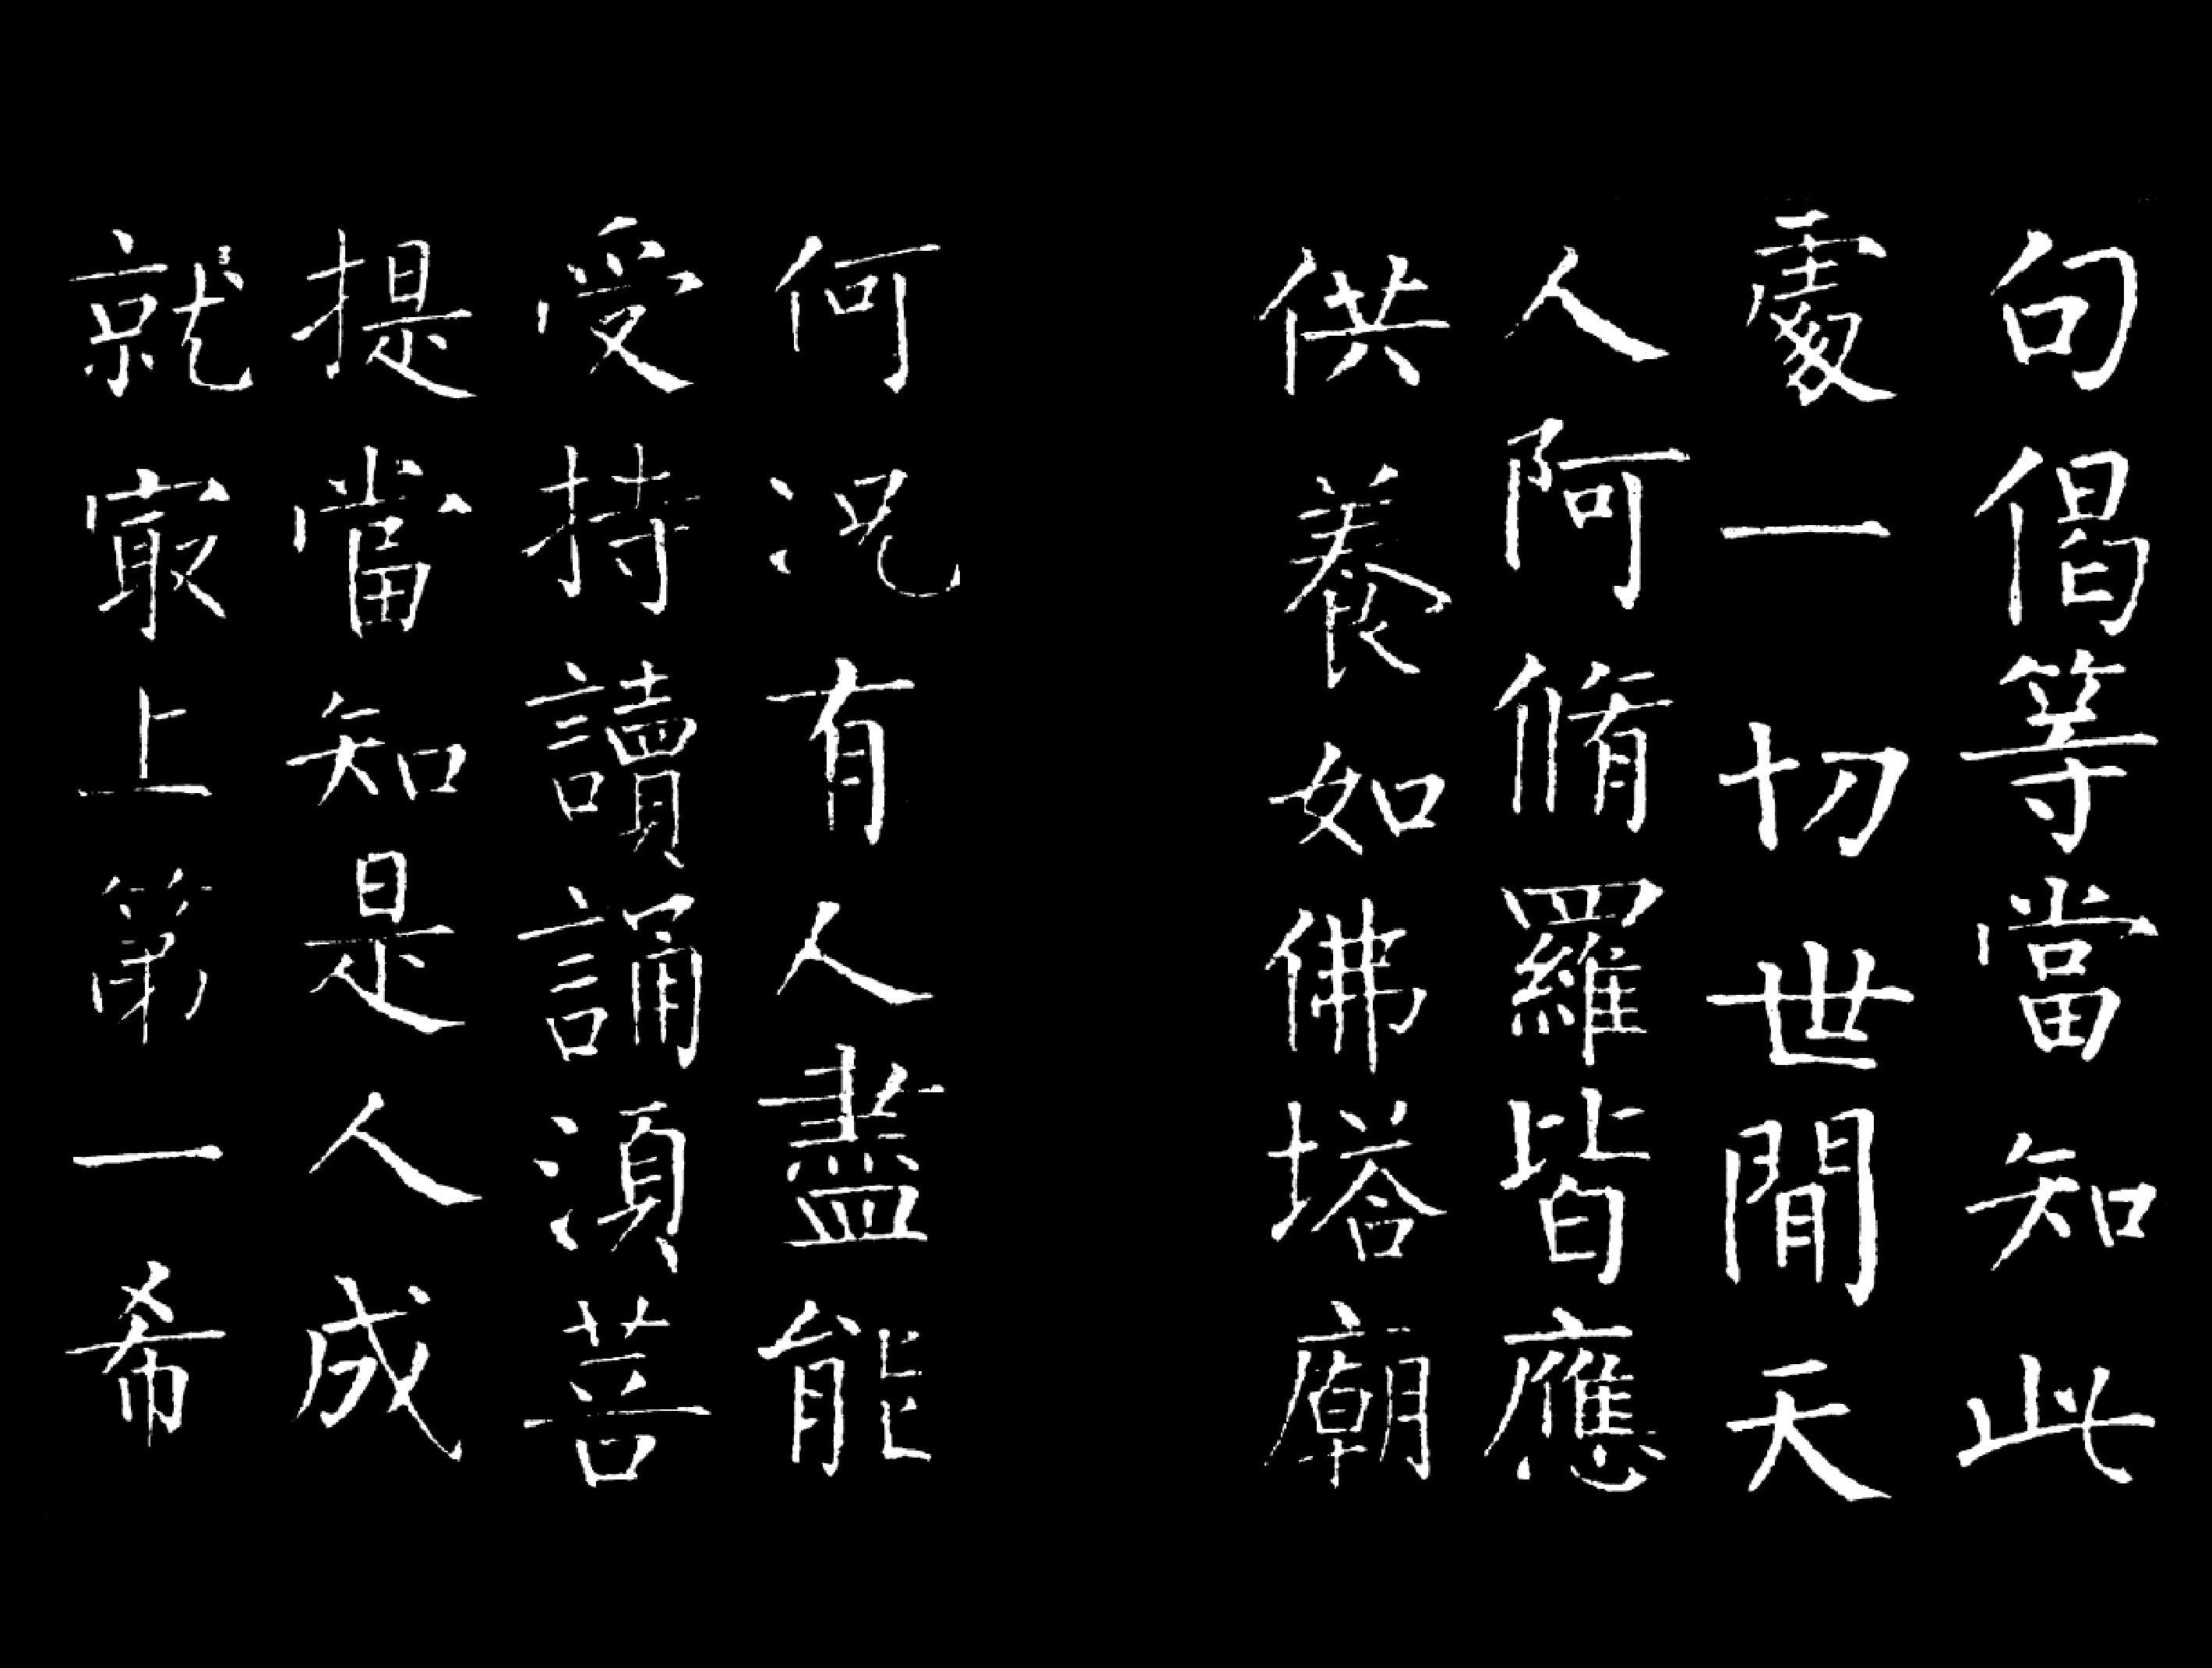 句偈等當知此
處一切世間天
人阿脩羅皆應
供養如佛塔廟
何況有人盡能
受持讀誦須菩
提當知是人成
就最上第一希